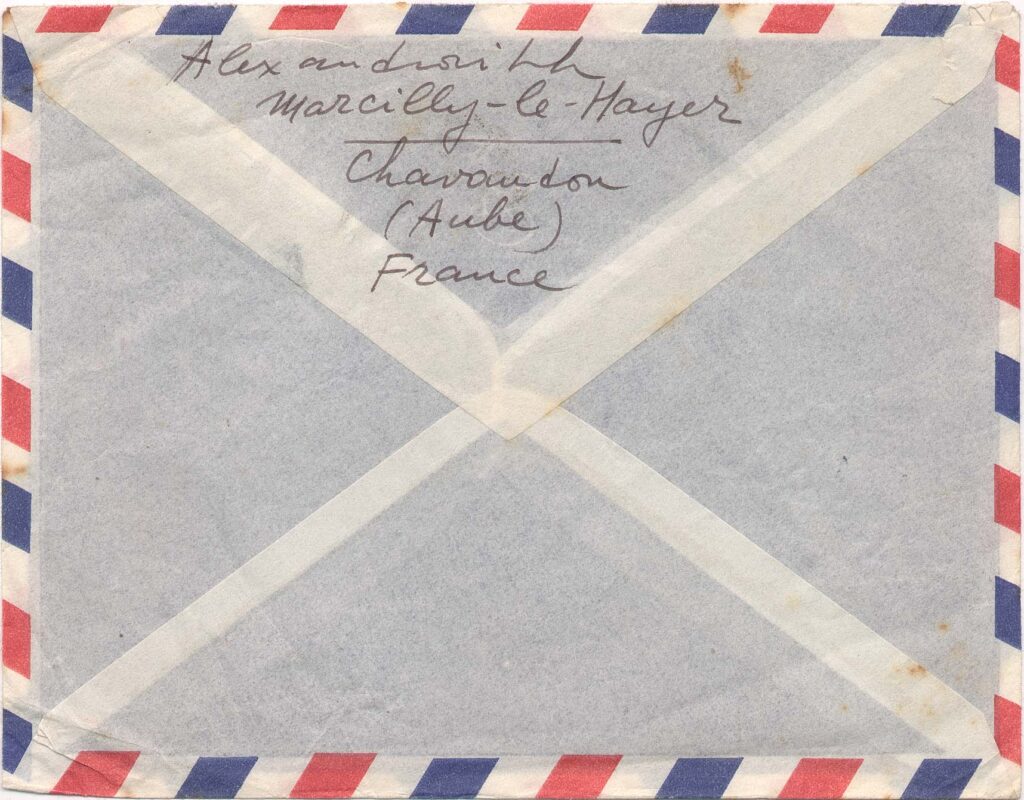 Marcilly-le-Hayer
Chavaudon
(Aube)
France